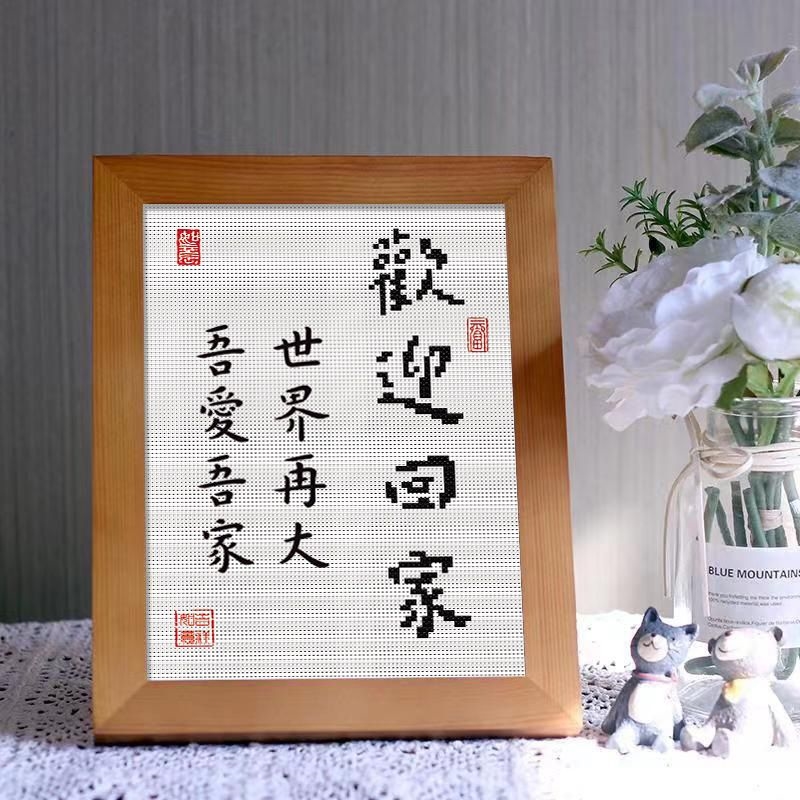 歡迎回家
世界再大
吾愛吾家
如意
吉祥如意
BLUE MOUNTAINS